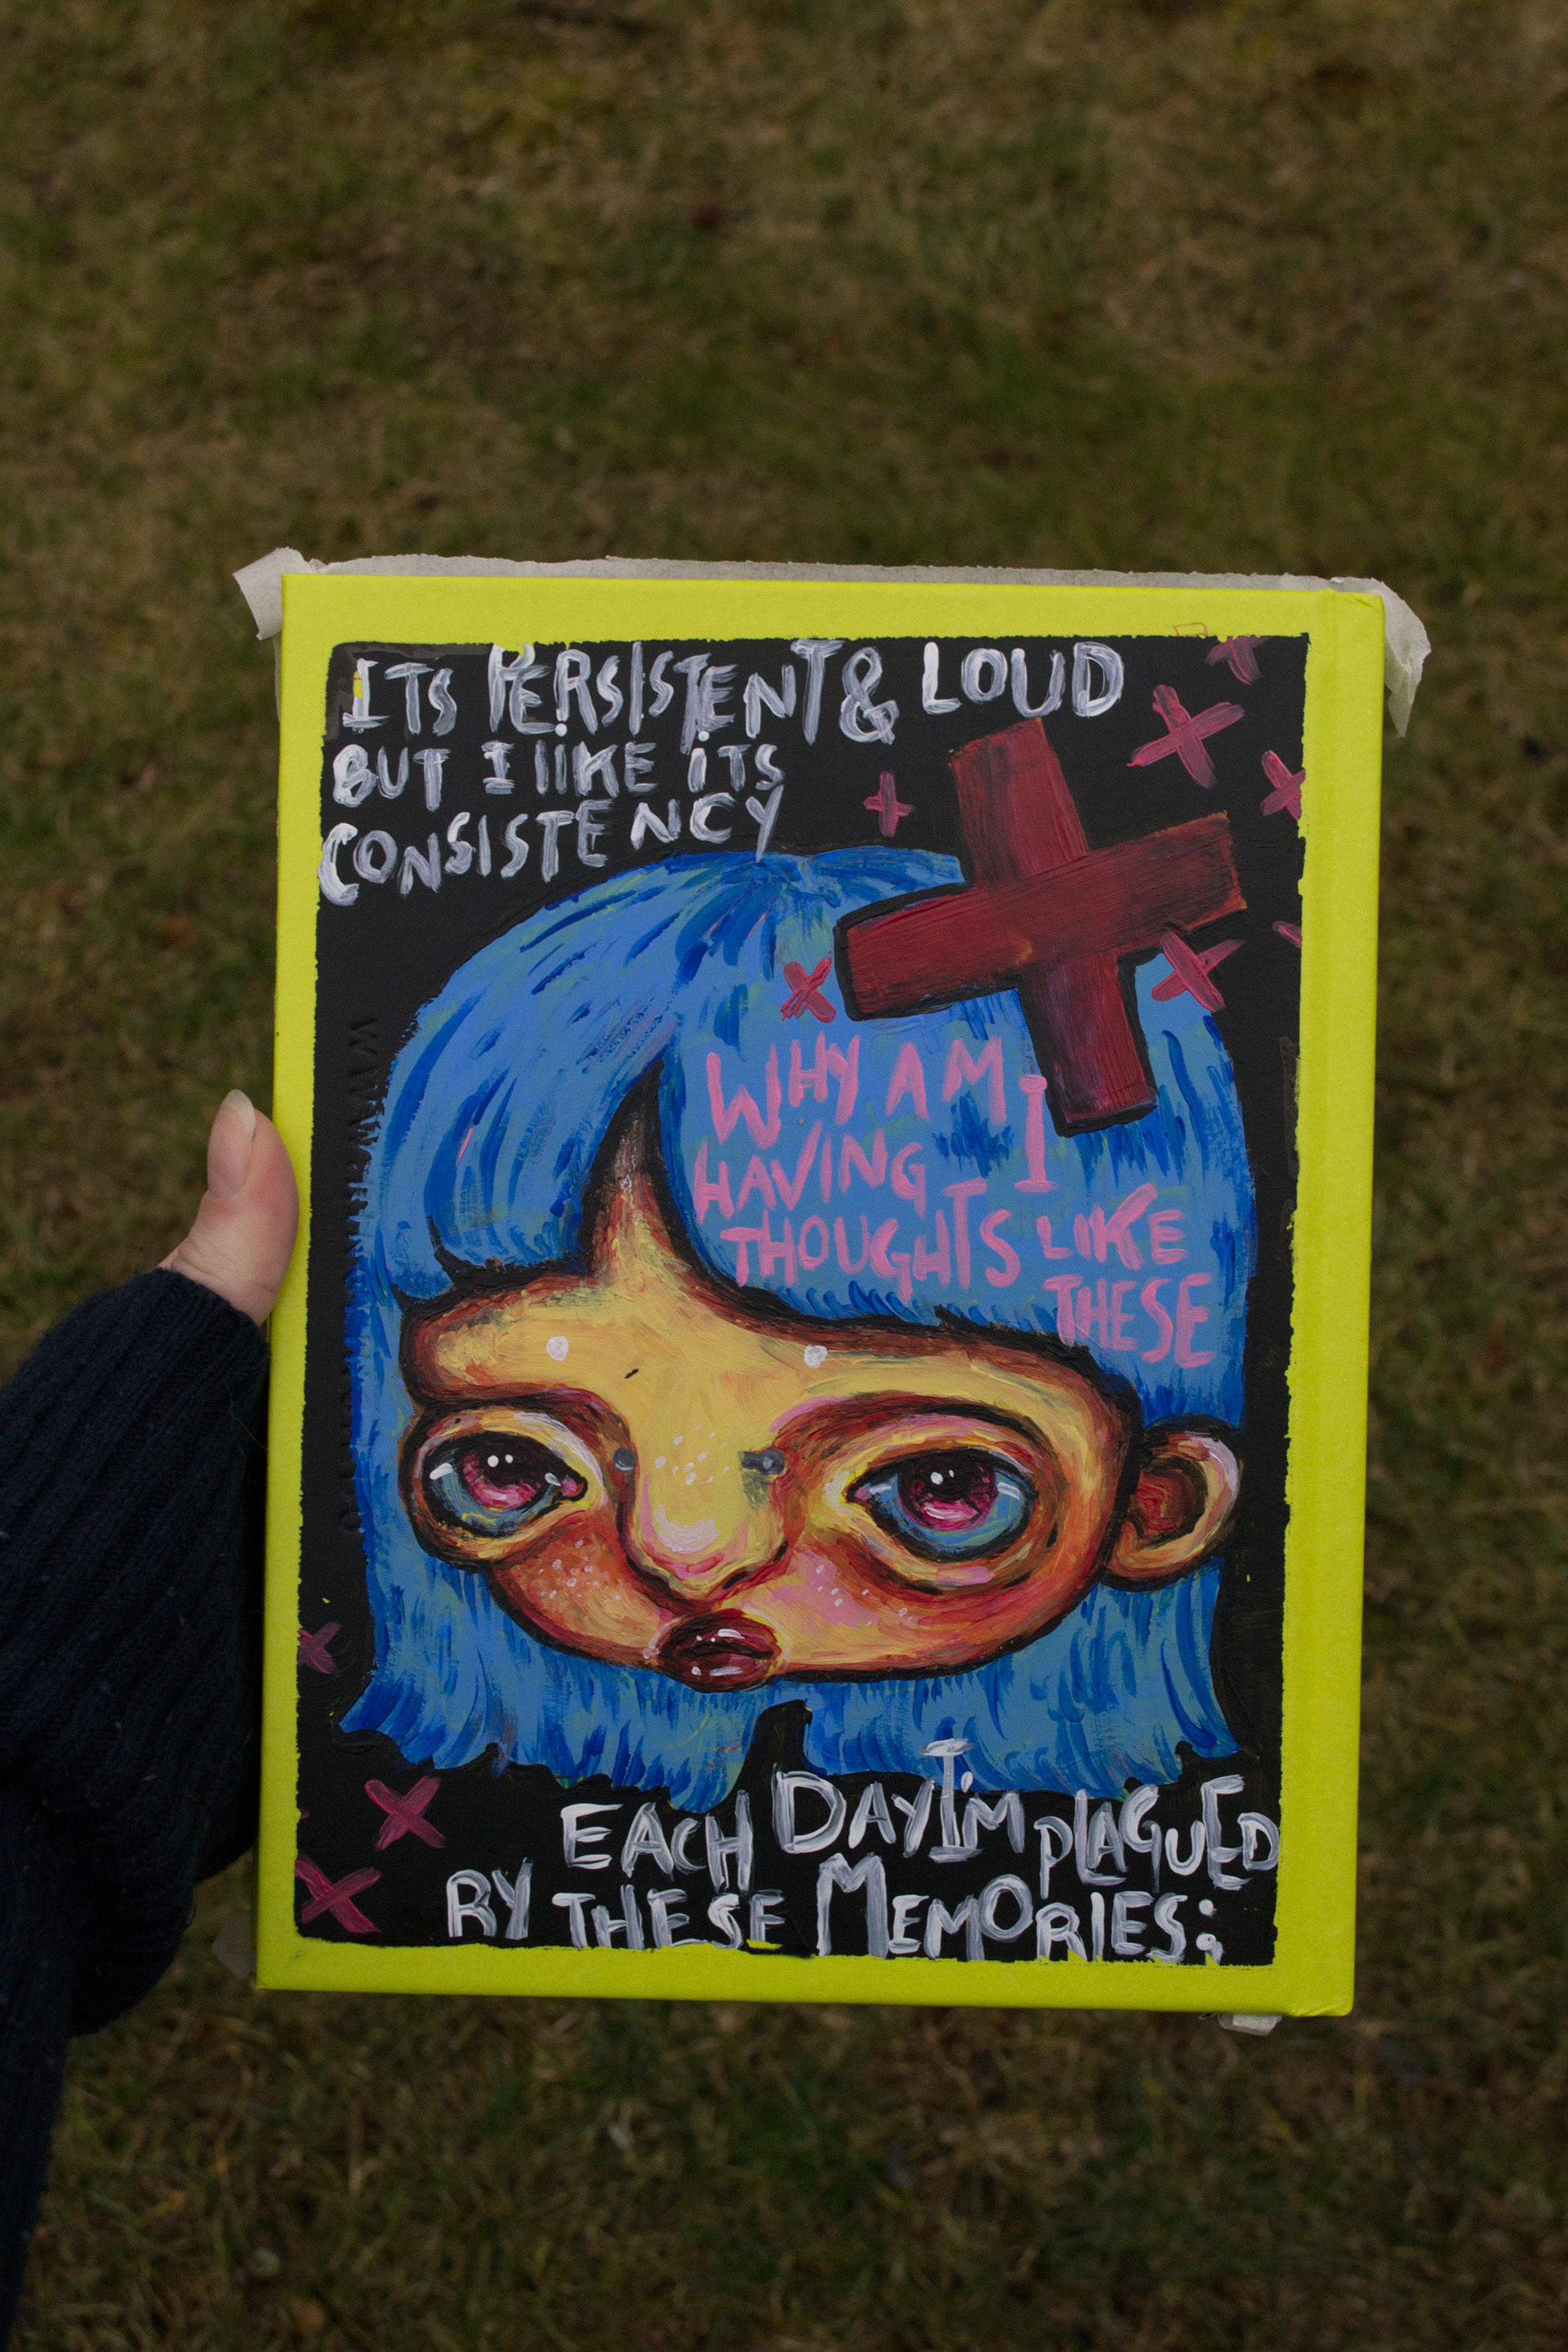 ITS PERSISTENT & LOUD
BUT I lIKE iTS
CONSISTENCY
WHY AM I
HAVING
THOUGHTS LIKE
THESE
EACH DAY I'M PLAGUED
BY THESE MEMORIES;